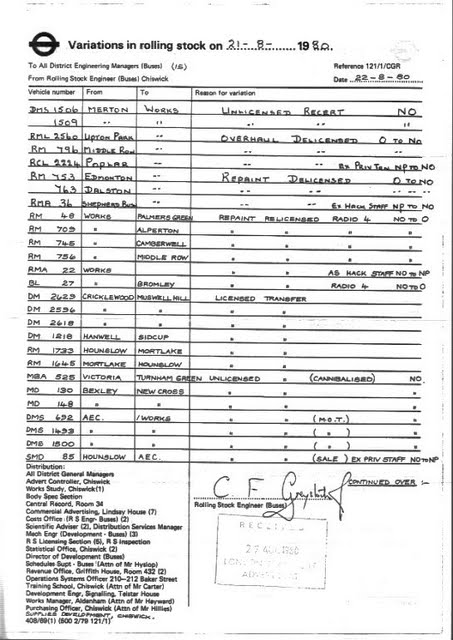 Variations in rolling stock on 21-8- 1980.
To All District Engineering Managers (Buses) (15) Reference 121/1/CGR
From Rolling Stock Engineer (Buses) Chiswick Date 22-8-80
Vehicle number From To Reason for variation
DMS 1506 MERTON WORKS UNLICENSED RECERT NO
1509 " " " " "
RML 2560 UPTON PARK " OVERHAUL DELICENSED O TO NO
RM 796 MIDDLE ROW " " " "
RCL 2224 POPLAR " " " EX PRIV TRN NP TO NO
RM 753 EDMONTON " REPAINT DELICENSED O TO NO
763 DALSTON " " " "
RMA 36 SHEPHERDS BUSH " " " EX HACK STAFF NP TO NO
RM 48 WORKS PALMERS GREEN REPAINT RELICENSED RADIO 4 NO TO O
RM 709 " ALPERTON " " " "
RM 745 " CAMBERWELL " " " "
RM 756 " MIDDLE ROW " " " "
RMA 22 WORKS " " AS HACK STAFF NO TO NP
BL 27 " BROMLEY " " RADIO 4 NO TO O
DM 2629 CRICKLEWOOD MUSWELL HILL LICENSED TRANSFER
DM 2596 " " " "
DM 2618 " " " "
DM 1218 HANWELL SIDCUP " "
RM 1733 HOUNSLOW MORTLAKE " "
RM 1645 MORTLAKE HOUNSLOW " "
MBA 525 VICTORIA TURNHAM GREEN UNLICENSED " (CANNIBALISED) NO.
MD 130 BEXLEY NEW CROSS " " "
MD 148 " " " " "
DMS 692 AEC. /WORKS " " (M.O.T.) "
DMS 1493 " " " " ( " ) "
DMS 1500 " " " " ( " ) "
SMD 85 HOUNSLOW AEC. " " (SALE) EX PRIV STAFF NO TO NP
Distribution:
All District General Managers
Advert Controller, Chiswick
Works Study, Chiswick(1)
Body Spec Section
Central Record, Room 34
Commercial Advertising, Lindsay House (7)
Costs Office (R S Engr- Buses) (2)
Scientific Adviser (2), Distribution Services Manager
Mech Engr (Development - Buses) (3)
R S Licensing Section (5), R S Inspection
Statistical Office, Chiswick (2)
Director of Development (Buses)
Schedules Supt - Buses (Attn of Mr Hyslop)
Revenue Office, Griffith House, Room 432 (2)
Operations Systems Officer 210-212 Baker Street
Training School, Chiswick (Attn of Mr Carter)
Development Engr, Signalling, Telstar House
Works Manager, Aldenham (Attn of Mr Hayward)
Purchasing Officer, Chiswick (Attn of Mr Hillies)
SUPPLIES DEVELOPMENT, CHISWICK.
408/69(1) (600 2/79 121/1)
CONTINUED OVER :-
C F
Rolling Stock Engineer (Buses)
RECEIVED
AUG 1980